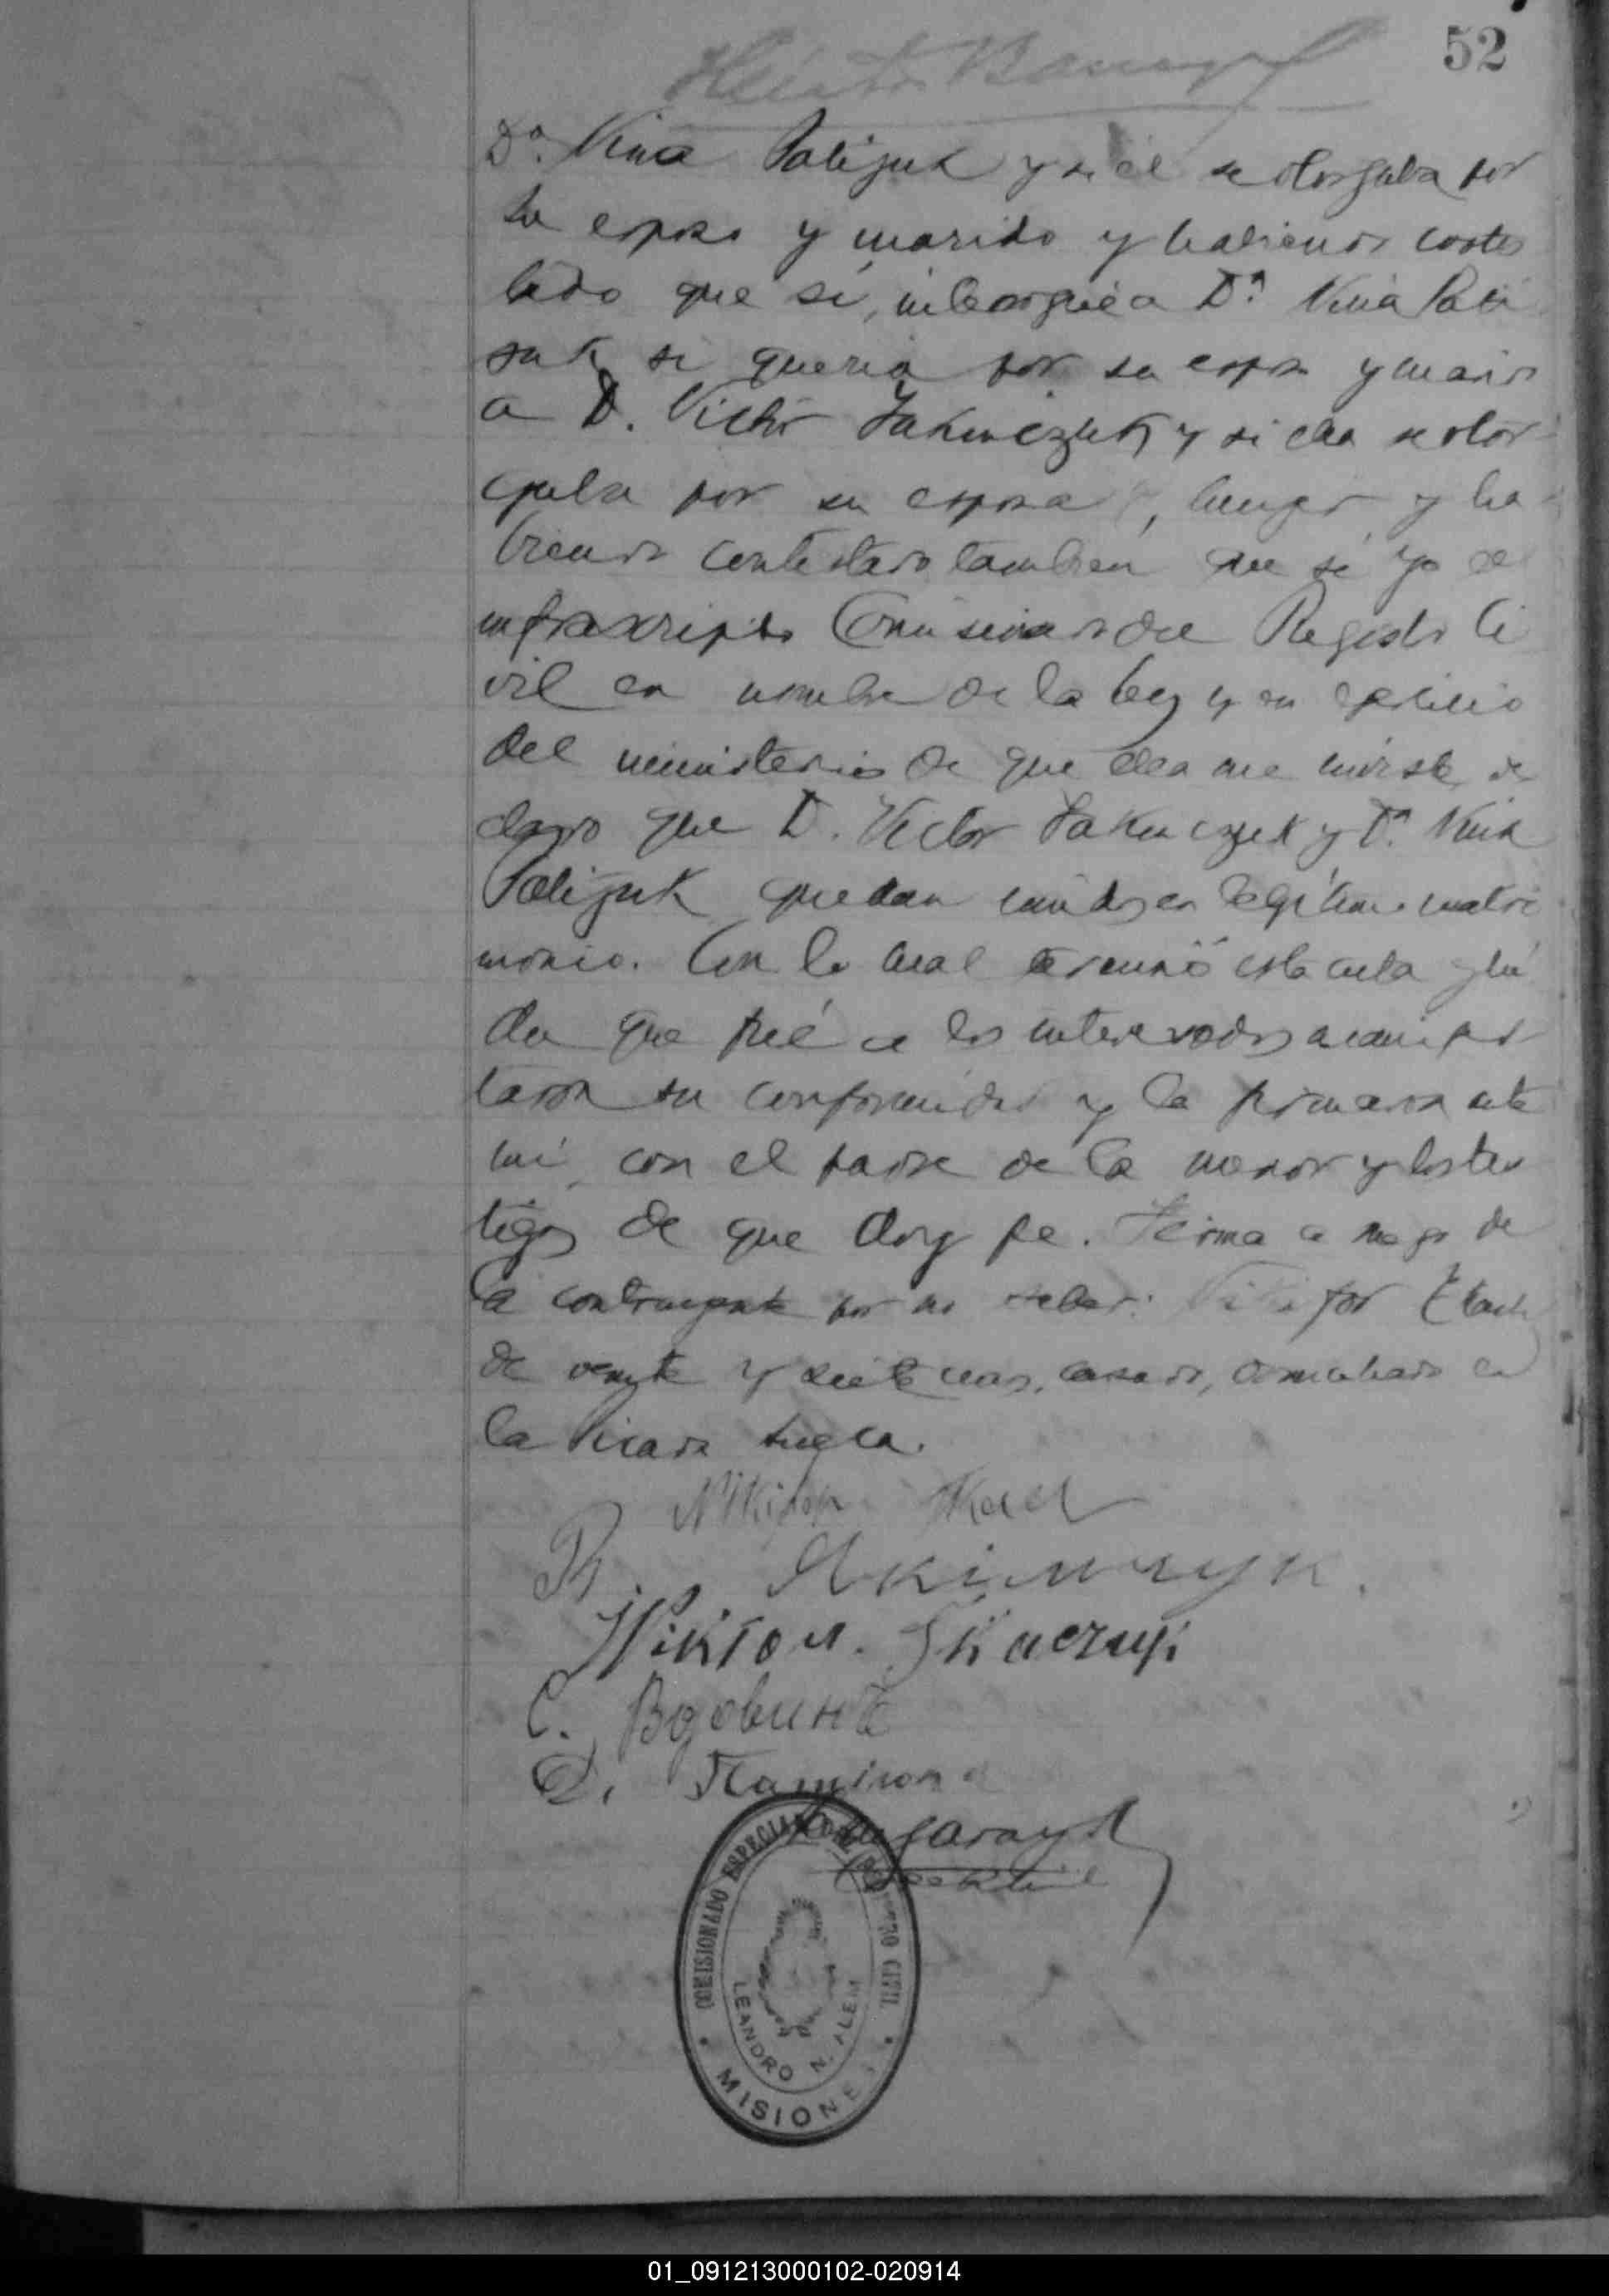 52
Héctor
Da. Nina Palijuk y si el se otorgaba por
su esposo y marido y habiendo contes
tado que sí, interrogué a Da. Nina Pali
juk si queria por su esposo y marido
a D. Victor Jakimczuk y si ella se otor
gaba por su esposa, mujer y ha
biendo contestado también que sí yo el
infrascripto Comisionado del Registro Ci
vil en nombre de la ley y en ejercicio
del ministerio de que ella me inviste de
claro que D. Victor Jakimczuk y Da. Nina
Palijuk quedan unidos en legítimo matri
monio. Con lo cual terminó esta acta leí
da que fué a los interesados manifes
taron su conformidad y la firmaron ante
mí, con el padre de la menor y los tes
tigos de que doy fe. Firma a ruego de
la contrayente por no saber: Nikifor Tkach
de veinte y siete años, casado, domiciliado en
la Picada Sueca.
Nikifor Tkach
Якимчук.
Wiktor.
С. Вдовинъ
Garay
COMISIONADO ESPECIAL DEL REGISTRO CIVIL
LEANDRO N. ALEM
MISIONES
01_091213000102-020914